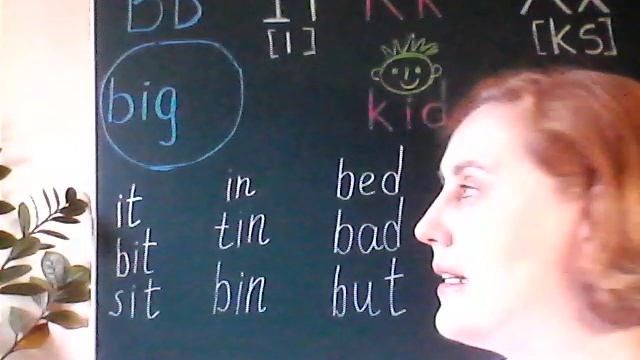 Bb Ii Kk Xx
[I] [ks]
big kid
it in bed
bit tin bad
sit bin but